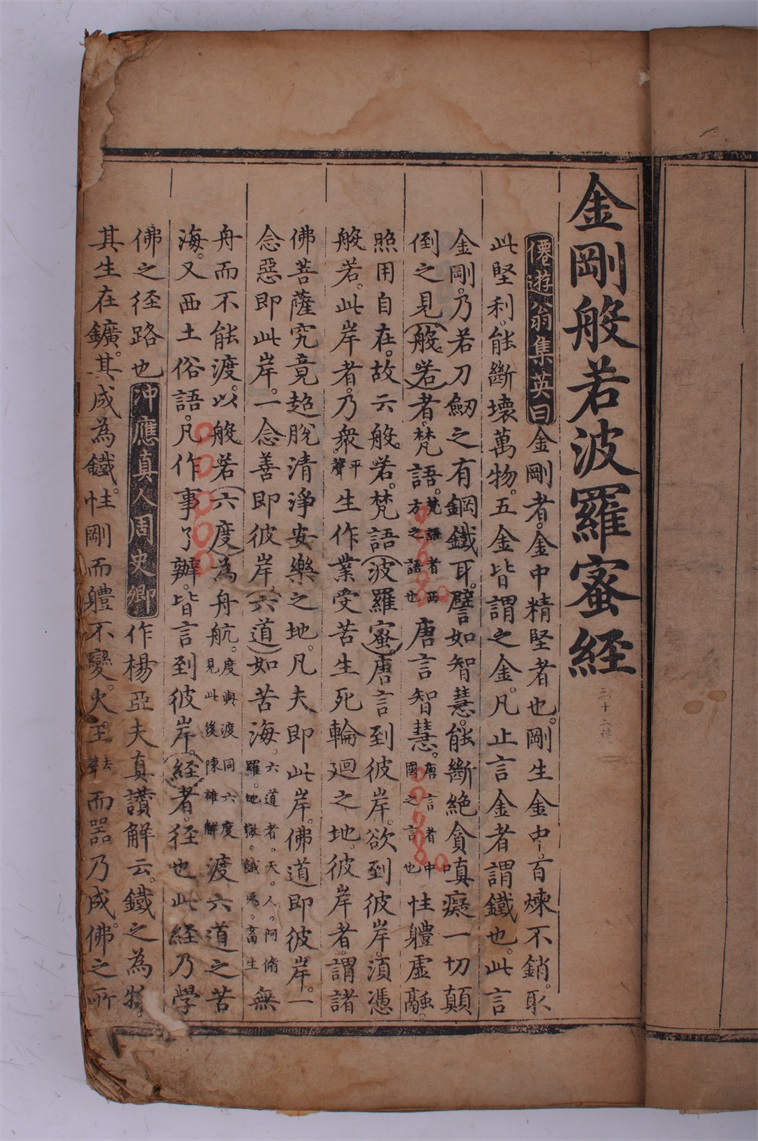 金剛般若波羅蜜經
僊遊翁集英曰金剛者。金中精堅者也。剛生金中。百煉不銷。取
此堅利。能斷壞萬物。五金皆謂之金。凡止言金者謂鐵也。此言
金剛。乃若刀劒之有鋼鐵耳。譬如智慧。能斷絶貪嗔癡一切顛
倒之見。般若者。梵語。梵語者西方之語也唐言智慧。唐言者中國之言也性軆虛融。
照用自在。故云般若。梵語波羅蜜。唐言到彼岸。欲到彼岸湏憑
般若。此岸者。乃衆平聲生作業受苦生死輪廻之地。彼岸者。謂諸
佛菩薩究竟超脫清淨安樂之地。凡夫即此岸。佛道即彼岸。一
念惡即此岸。一念善即彼岸。六道如苦海。六道者。天。人。阿脩羅。地獄。餓鬼。畜生無
舟而不能渡。以般若六度為舟航。度與渡同六度見此後陳雄解渡六道之苦
海。又西土俗語。凡作事了辦。皆言到彼岸。經者。徑也。此經乃學
佛之徑路也沖應真人周史卿作楊亞夫真讚解云。鐵之為物
其生在鑛。其成為鐵。性剛而軆不變。火王去聲而器乃成。佛之所